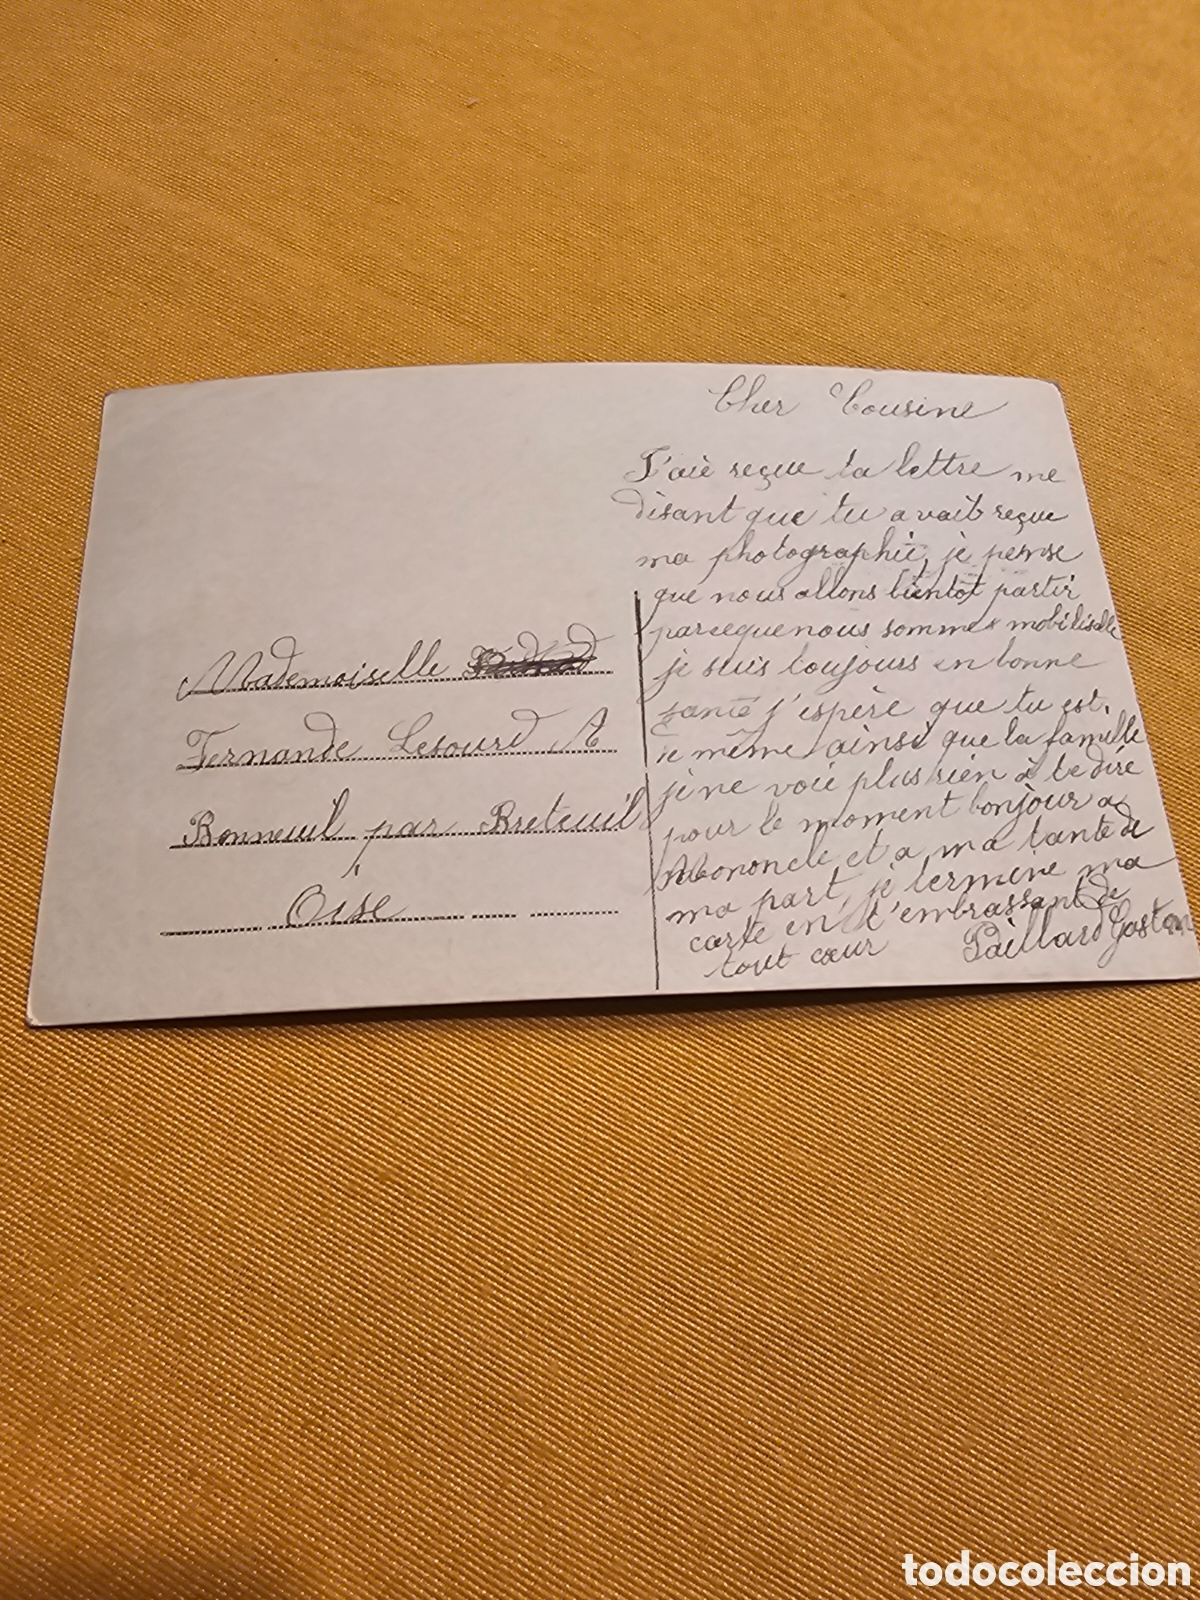 Mademoiselle
Fernande Lesourd A
Bonneuil par Breteuil
Oise
Cher Cousine
J'aie reçue ta lettre me
disant que tu avait reçue
ma photographie, je pense
que nous allons bientot partir
parceque nous sommes mobilisable
je suis toujours en bonne
santé j'espère que tu est,
de même ainsi que la famille
je ne voie plus rien à te dire
pour le moment bonjour a
Mononcle et a ma tante de
ma part, je termine ma
carte en t'embrassant de
tout cœur Paillard Gaston
todocoleccion